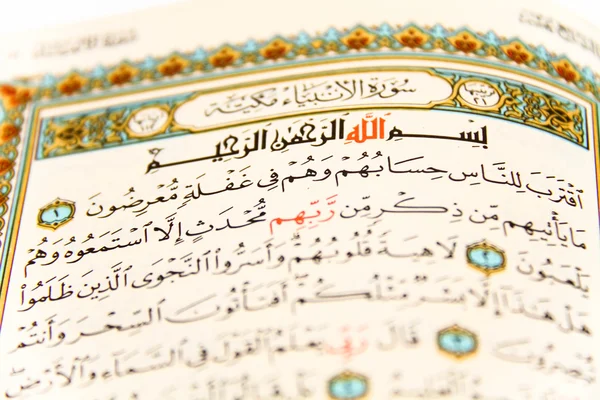 سُورَةُ الأَنْبِيَاءِ مَكِّيَّة
بِسْمِ اللَّهِ الرَّحْمَٰنِ الرَّحِيمِ
ٱقْتَرَبَ لِلنَّاسِ حِسَابُهُمْ وَهُمْ فِى غَفْلَةٍ مُّعْرِضُونَ ١
مَا يَأْتِيهِم مِّن ذِكْرٍ مِّن رَّبِّهِم مُّحْدَثٍ إِلَّا ٱسْتَمَعُوهُ وَهُمْ
يَلْعَبُونَ ٢ لَاهِيَةً قُلُوبُهُمْ وَأَسَرُّوا۟ ٱلنَّجْوَى ٱلَّذِينَ ظَلَمُوا۟
هَلْ هَٰذَآ إِلَّا بَشَرٌ مِّثْلُكُمْ أَفَتَأْتُونَ ٱلسِّحْرَ وَأَنتُمْ
تُبْصِرُونَ ٣ قَالَ رَبِّى يَعْلَمُ ٱلْقَوْلَ فِى ٱلسَّمَآءِ وَٱلْأَرْضِ